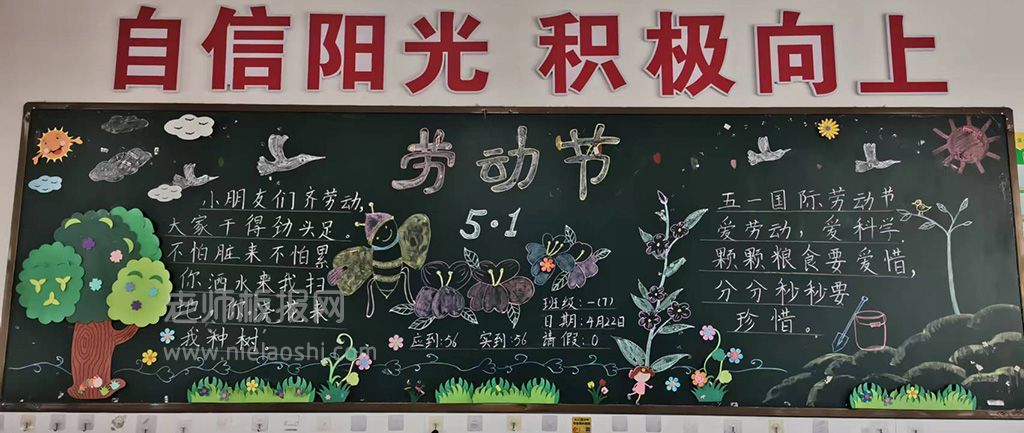 自信阳光 积极向上
劳动节
5·1
小朋友们齐劳动,
大家干得劲头足。
不怕脏来不怕累
你洒水来我扫
我种树
五一国际劳动节
爱劳动,爱科学
颗颗粮食要爱惜,
分分秒秒要
珍惜。
班级:一(7)
日期:4月22日
应到:56 实到:56 请假:0
老师板报网
www.nielaoshi.com